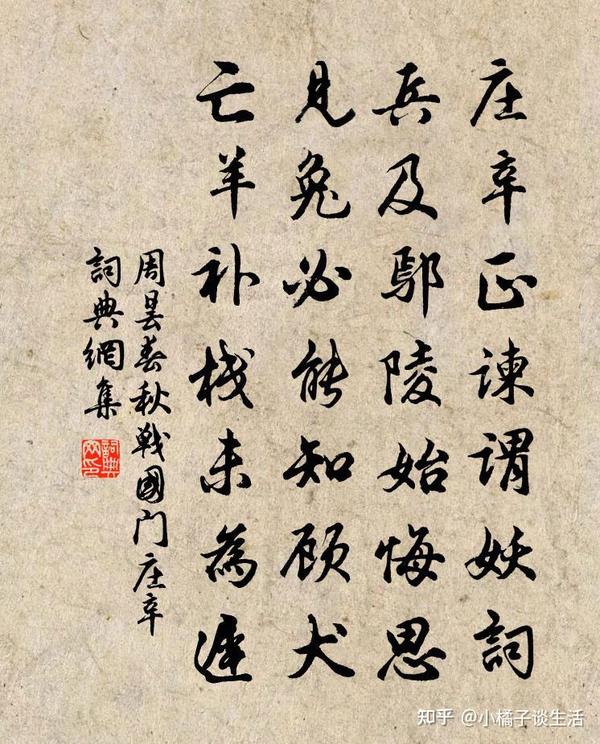 庄辛正谏谓妖詞
兵及鄢陵始悔思
見兔必能知顾犬
亡羊补栈未為遲
周昙春秋戦國门庄辛
詞典網集
詞典
网印
知乎 @小橘子谈生活